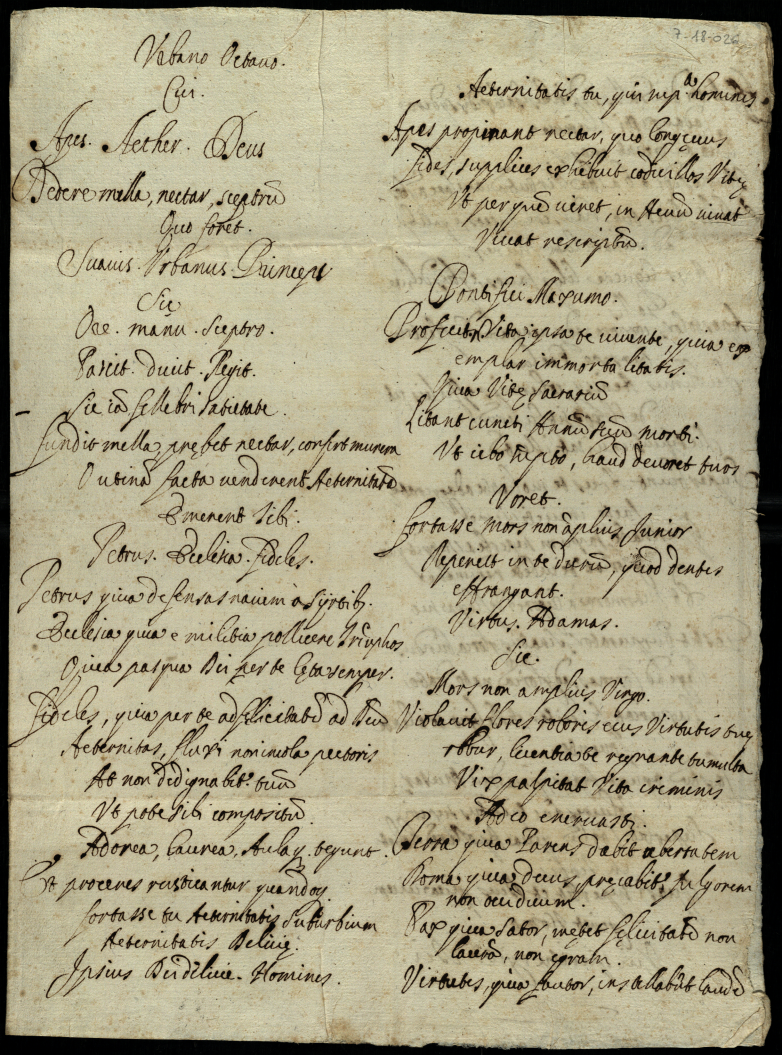 7-18-026
Vrbano Octavo.
Cui.
Apes. Aether. Deus
Dedere mella, nectar, sceptrū
Quo foret.
Suauis. Vrbanus. Princeps
Sic
Ore. manu. sceptro.
Pascit. ducit. Regit.
Sic
fundit mella, prębet nectar, confert
O utinā facta venderent Aeternitatē
Emerent sibi.
Petrus. Ecclesia. fideles.
Petrus quia defensas nauim a syrtibꝫ.
Ecclesia quia e militia pollicere triūphos
Quia pascua Dei per te lęta semper.
fideles, quia per te ad felicitatē ad Deū
Aeternitas, fluxi non incola pectoris
At non dedignabitʳ tuū
Vt pote sibi compositū.
Adorea, laurea, Aulaq. tegunt.
Vt proceres rusticantur quandoq.
fortasse tu Aeternitatis suburbium
Aeternitatis Delicię.
Ipsius Dei delicie. Homines.
Aeternitatis tu, qui homines
Apes propinant nectar, quo longęuus
fides, supplices exhibuit codicillos Vitę
Vt per quē uiret, in Aeuū viuat
Viuat rescriptū.
Pontifici Maxumo.
Proficit Vita ipsa te viuente, quia ex
emplar immortalitatis.
Quia Vitę sacrariū
Litant cuncti Annū suū morti.
Vt cibo sūpto, haud deuoret tuos
Voret.
fortasse mors non āplius Junior
Reperiet in te durū, quod dentes
effrangant.
Virtus. Adamas.
Sic.
Mors non amplius Virgo.
Violauit flores roboris eius Virtutis tuę
robur, licentia te regnante tumulta
Vix palpitat Vita criminis
Adeo eneruasti.
Terra quia Parens dabit ubertatem
Roma quia decus pręcabitʳ fulgorem
non occiduum.
Pax quia sator, metet fęlicitatē non
laceram, non ęgram.
Virtutes, quia fautor, instillabūt laudē